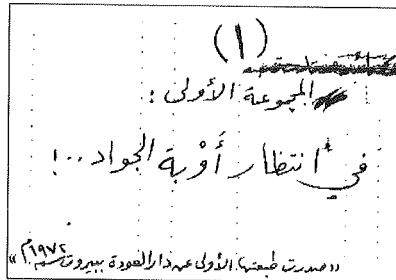 (١)
المجموعة الأولى :
في انتظار أَوْبة الجواد ..!
((صدرت طبعتها الأولى عن دار العودة ببيروت سنة ١٩٧٢م))